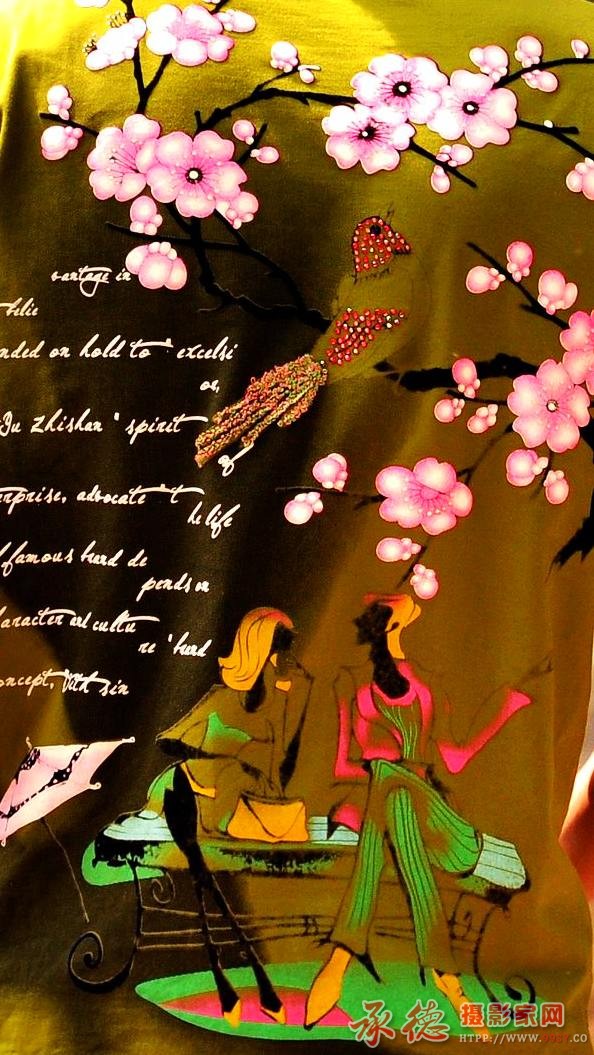 vantage in
belie
nded on hold to " excelsi
or,
Qu zhishan " spirit
of
erprise, advocate " t
he life
famous brand de
pends on
haracter and cultu
re " brand
oncept, With sin
承德摄影家网